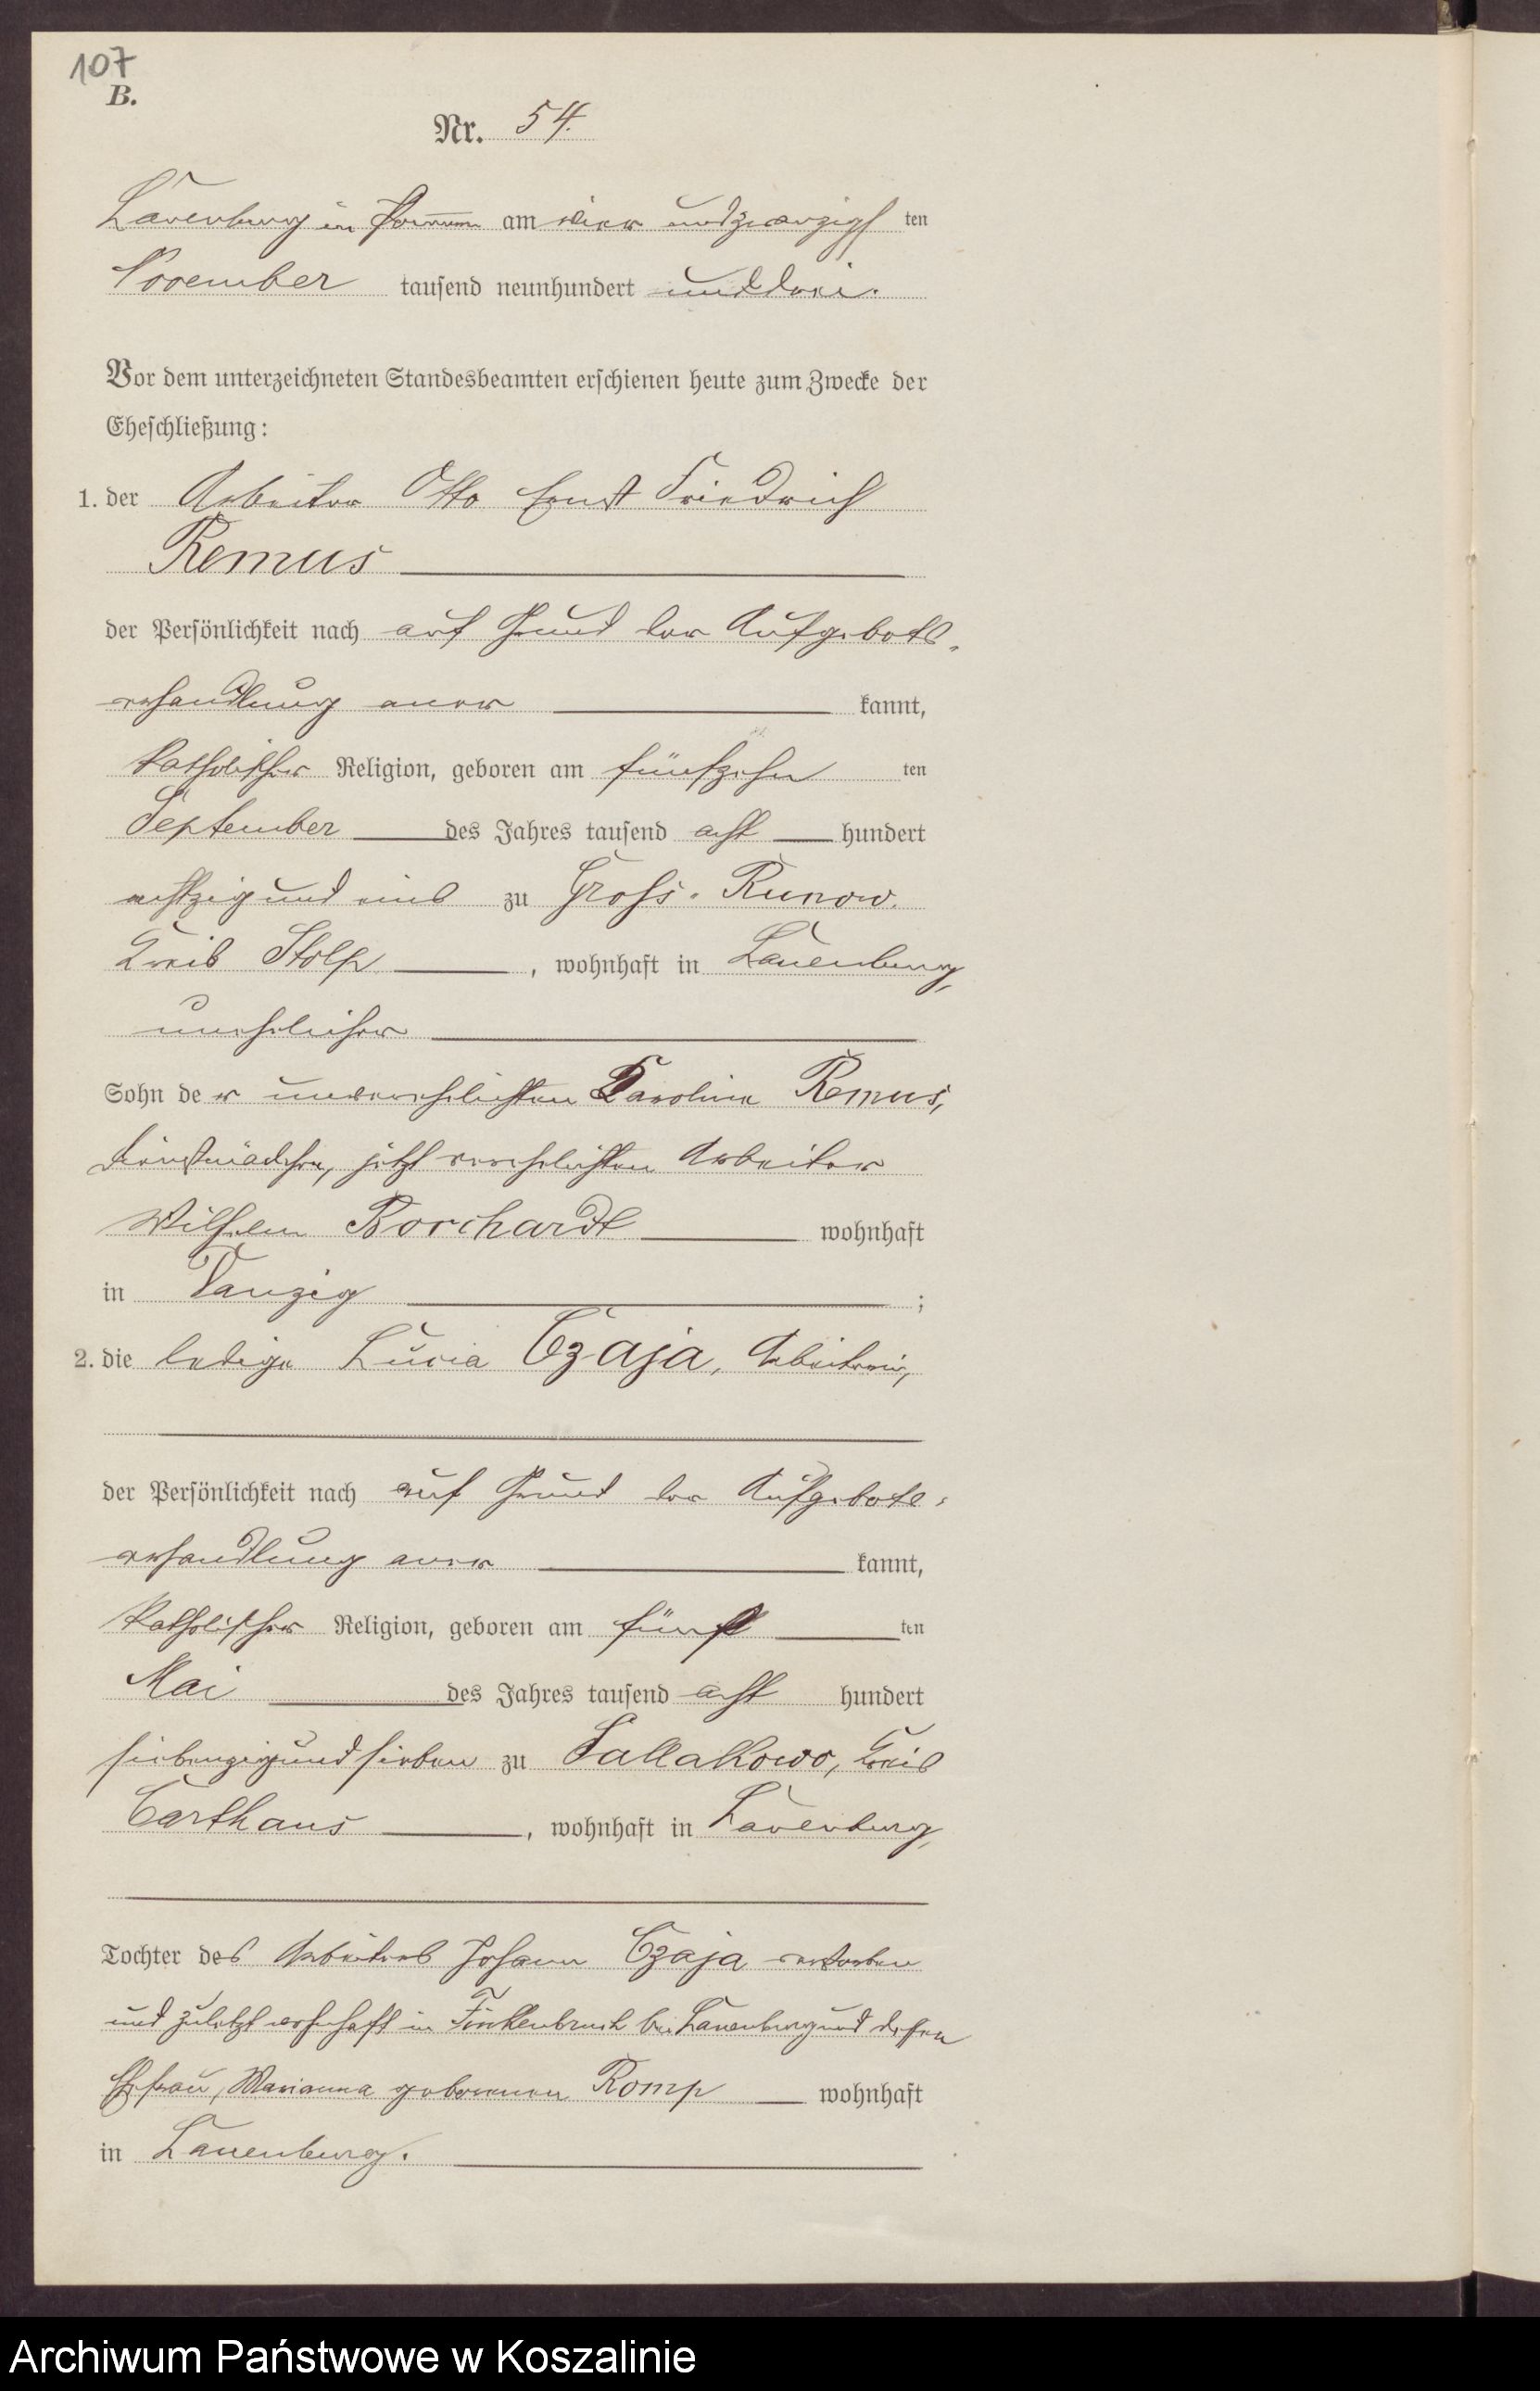 107
B.
Nr. 54.
Lauenburg in Pomm am vier und zwanzigsten
November tausend neunhundert und drei.
Vor dem unterzeichneten Standesbeamten erschienen heute zum Zwecke der
Eheschließung:
1. der Arbeiter Otto Ernst Friedrich
Remus
der Persönlichkeit nach auf Grund der Aufgebots-
verhandlung aner kannt,
katholischer Religion, geboren am fünfzehn ten
September des Jahres tausend acht hundert
achtzig und eins zu Gross-Runow,
Kreis Stolp, wohnhaft in Lauenburg,
unehelicher
Sohn der unverehelichten Karoline Remus,
Dienstmädchen, jetzt verehelichten Arbeiter
Wilhelm Borchardt wohnhaft
in Danzig ;
2. die ledige Lucia Czaja, Arbeiterin,
der Persönlichkeit nach auf Grund der Aufgebots-
verhandlung aner kannt,
katholischer Religion, geboren am fünf ten
Mai des Jahres tausend acht hundert
siebenzig und sieben zu Sallakowo, Kreis
Carthaus, wohnhaft in Lauenburg,
Tochter des Arbeiters Johann Czaja verstorben
und zuletzt wohnhaft in Finkenbruch bei Lauenburg und dessen
Ehefrau, Marianna geborenen Romp wohnhaft
in Lauenburg.
Archiwum Państwowe w Koszalinie